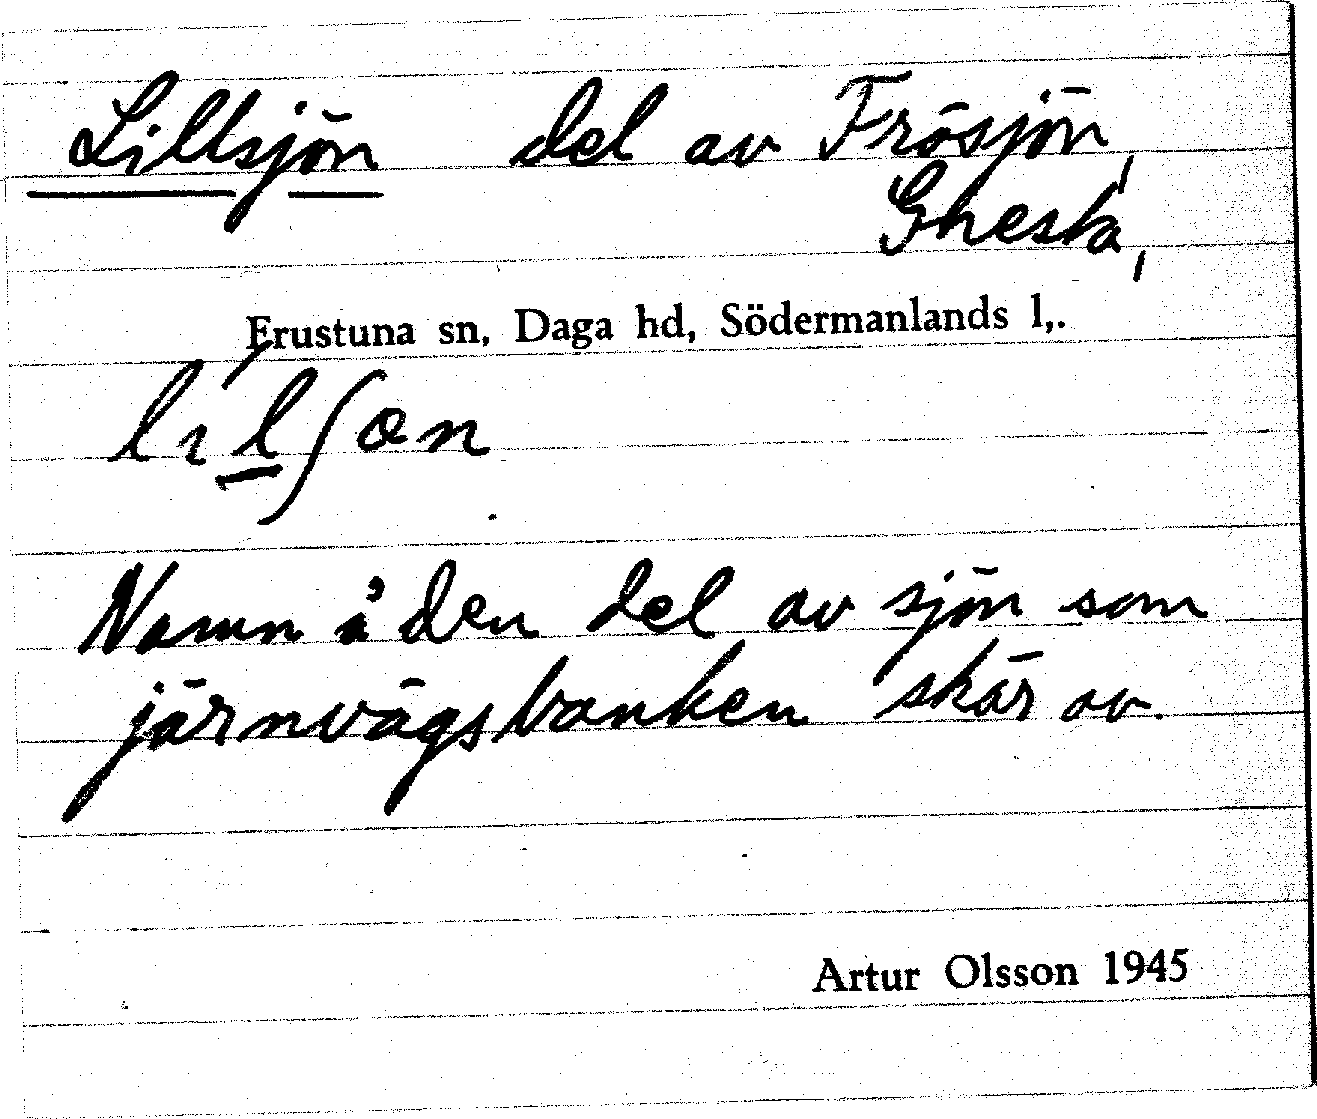 Lillsjön del av Frösjön,
Gnesta,
Frustuna sn, Daga hd, Södermanlands l,.
lılʃœn
Namn å den del av sjön som
järnvägsbanken skär av.
Artur Olsson 1945